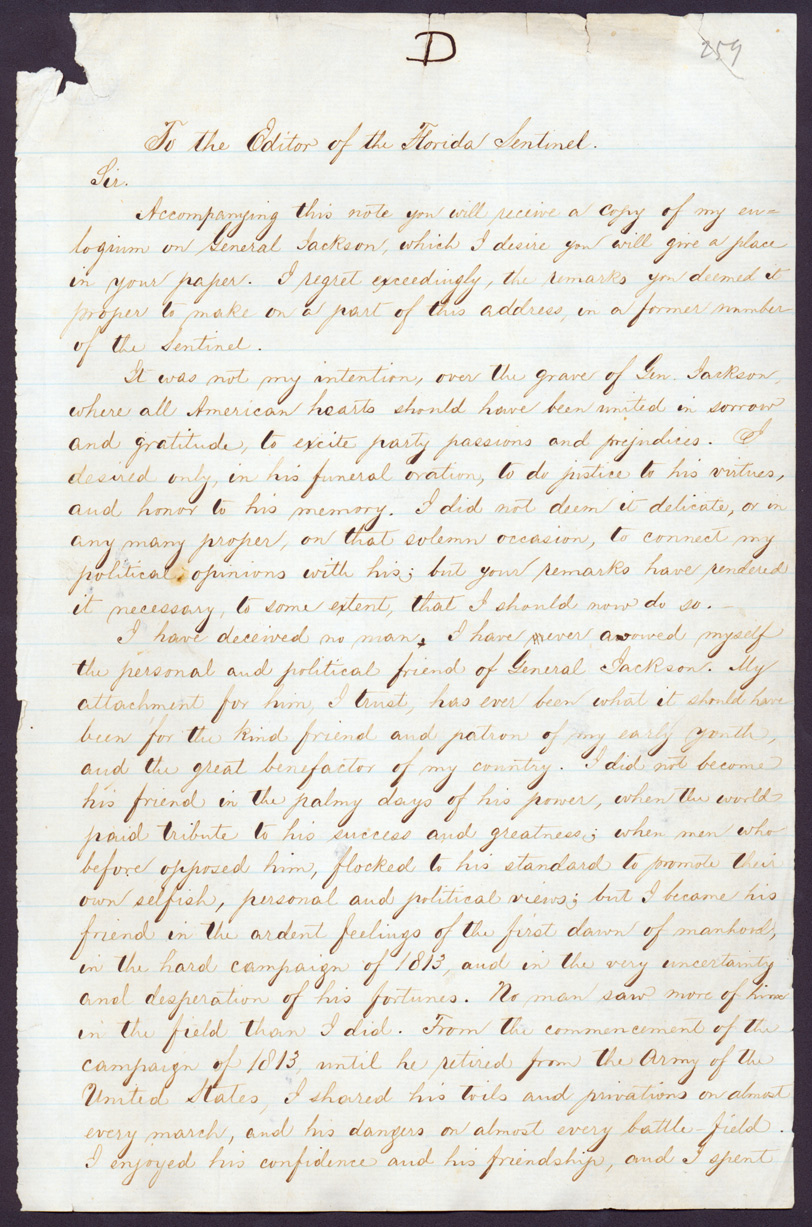 D
259
To the Editor of the Florida Sentinel.
Sir.
Accompanying this note you will receive a copy of my eu=
logium on General Jackson, which I desire you will give a place
in your paper. I regret exceedingly, the remarks you deemed it
proper to make on a part of this address, in a former number
of the Sentinel.
It was not my intention, over the grave of Gen. Jackson,
where all American hearts should have been united in sorrow
and gratitude, to excite party passions and prejudices. I
desired only, in his funeral oration, to do justice to his virtues,
and honor to his memory. I did not deem it delicate, or in
any many proper, on that solemn occasion, to connect my
political opinions with his; but your remarks have rendered
it necessary, to some extent, that I should now do so. —
I have deceived no man. I have ever avowed myself
the personal and political friend of General Jackson. My
attachment for him, I trust, has ever been what it should have
been for the kind friend and patron of my early youth,
and the great benefactor of my country. I did not become
his friend in the palmy days of his power, when the world
paid tribute to his success and greatness; when men who
before opposed him, flocked to his standard to promote their
own selfish, personal and political views; but I became his
friend in the ardent feelings of the first dawn of manhood,
in the hard campaign of 1813, and in the very uncertainty
and desperation of his fortunes. No man saw more of him
in the field than I did. From the commencement of the
campaign of 1813, until he retired from the Army of the
United States, I shared his toils and privations on almost
every march, and his dangers on almost every battle-field.
I enjoyed his confidence and his friendship, and I spent